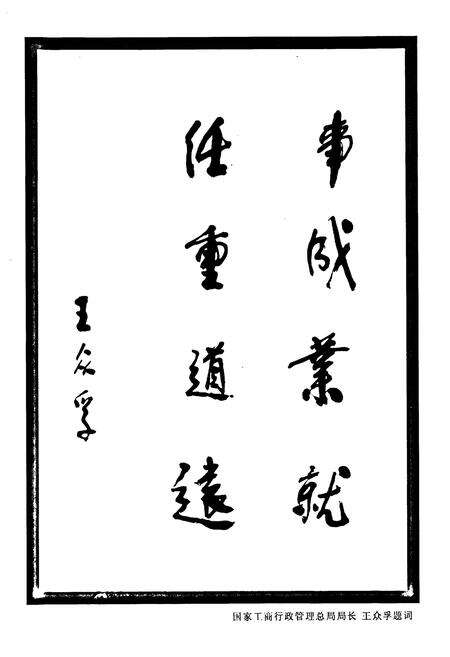 事成業就
任重道遠
王众孚
国家工商行政管理总局局长 王众孚题词